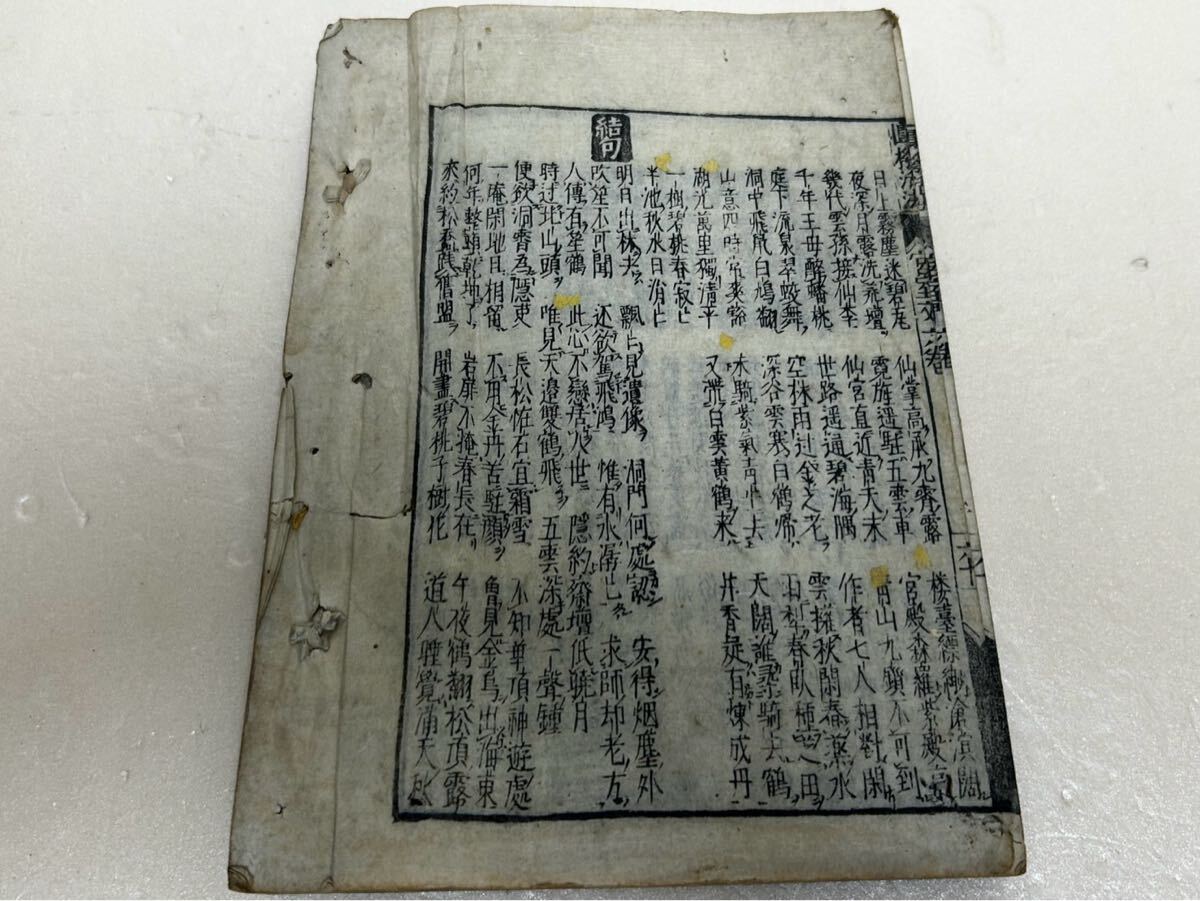 日上霧塵迷碧瓦 仙掌高承九霄露 樓臺縹緲滄溟闊
夜深月露洗飛壇 霓旌遥駐五雲車 宮殿森羅紫殿高
幾代雲孫接仙李 仙宮直近青天末 青山九鎖不可到
千年王母醉蟠桃 世路遥通碧海隅 作者七人相對閑
庭下流泉翠蛟舞 空林雨过金芝老 雲擁秋閑春藥水
洞中飛鼠白鴉翻 深谷雲寒白鶴帰 雨犁春臥種芝田
山意四時常爽豁 未騎紫氣青牛去 天闊誰乘騎去鶴
湖光萬里獨清平 又洗白雲黄鶴来 井香疑有煉成丹
一樹碧桃春寂〻
半池秋水日消〻
結句
明月出林去 飄〻見遺像 洞門何處認 安得烟塵外
吹笙不可聞 还欲駕飛鴻 惟有水潺〻 求師却老方
人傳有笙鶴 此心不戀居人世 隱約齋壇低曉月
時过北山頭 唯見天邊雙鶴飛 五雲深處一聲鍾
便欲洞霄為隱吏 長松恠石宜霜雪 不知華頂神遊處
一庵閑地日相留 不用金丹苦駐顔 曾見金烏出海東
何年整頓乾坤了 岩扉不掩春長在 午夜鶴翻松頂露
來約松喬践舊盟 開盡碧桃千樹花 道人睡覺滿天秋